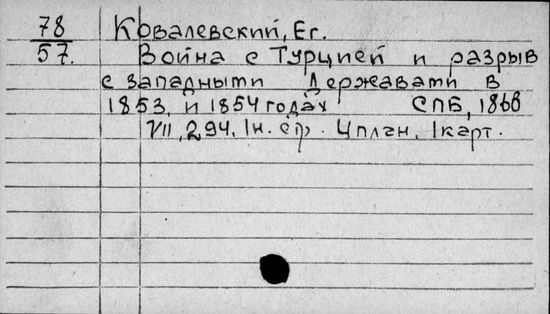 78
57.
Ковалевский, Ег.
Война с Турцией и разрыв
с западными державами в
1853 и 1854 годах СПБ, 1868
VII, 294, Iн. стр. 4план, 1карт.